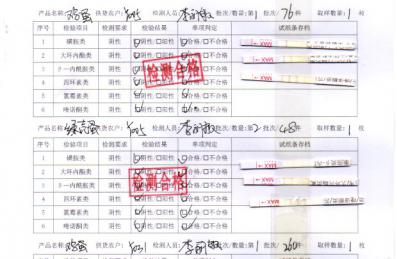 产品名称:鸡蛋 供货农户: 检测人员: 批次/数量:第1 批次/76 件 取样数量:1 枚
序号 检验项目 检测要求 检验结果 单项判定 试纸条存档
1 磺胺类 阴性 ☑阴性/☐阳性 ☑合格/☐不合格
2 大环内酯类 阴性 ☑阴性/☐阳性 ☑合格/☐不合格
3 β-内酰胺类 阴性 ☑阴性/☐阳性 ☑合格/☐不合格
4 四环素类 阴性 ☑阴性/☐阳性 ☑合格/☐不合格
5 氯霉素类 阴性 ☑阴性/☐阳性 ☑合格/☐不合格
6 喹诺酮类 阴性 ☑阴性/☐阳性 ☑合格/☐不合格
检测合格
MAX
MAX
产品名称:绿壳蛋 供货农户: 检测人员: 批次/数量:第2 批次/48 件 取样数量:1 枚
序号 检验项目 检测要求 检验结果 单项判定 试纸条存档
1 磺胺类 阴性 ☑阴性/☐阳性 ☑合格/☐不合格
2 大环内酯类 阴性 ☑阴性/☐阳性 ☑合格/☐不合格
3 β-内酰胺类 阴性 ☑阴性/☐阳性 ☑合格/☐不合格
4 四环素类 阴性 ☑阴性/☐阳性 ☑合格/☐不合格
5 氯霉素类 阴性 ☑阴性/☐阳性 ☑合格/☐不合格
6 喹诺酮类 阴性 ☑阴性/☐阳性 ☑合格/☐不合格
检测合格
MAX
MAX
MAX
产品名称:鸡蛋 供货农户: 检测人员: 批次/数量:第1 批次/ 件 取样数量:1 枚